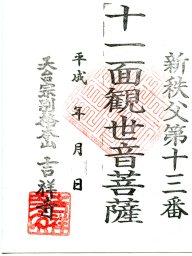 新秩父第十三番
十一面観世音菩薩
平成 年 月 日
天台宗別格本山 吉祥寺